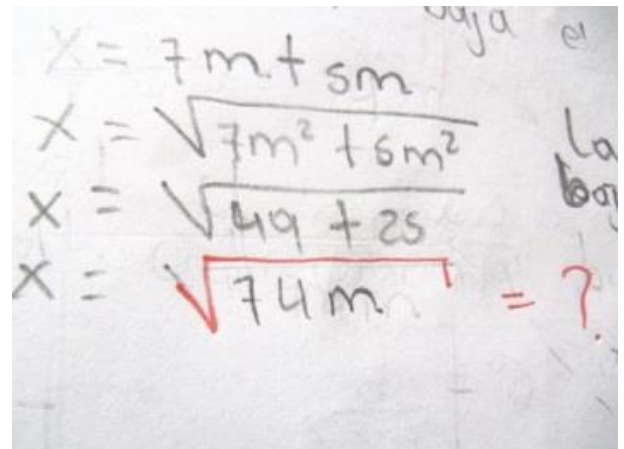 baja el
X = 7m + 5m
X = √7m² + 5m²
La
X = √49 + 25
X = √74m = ?